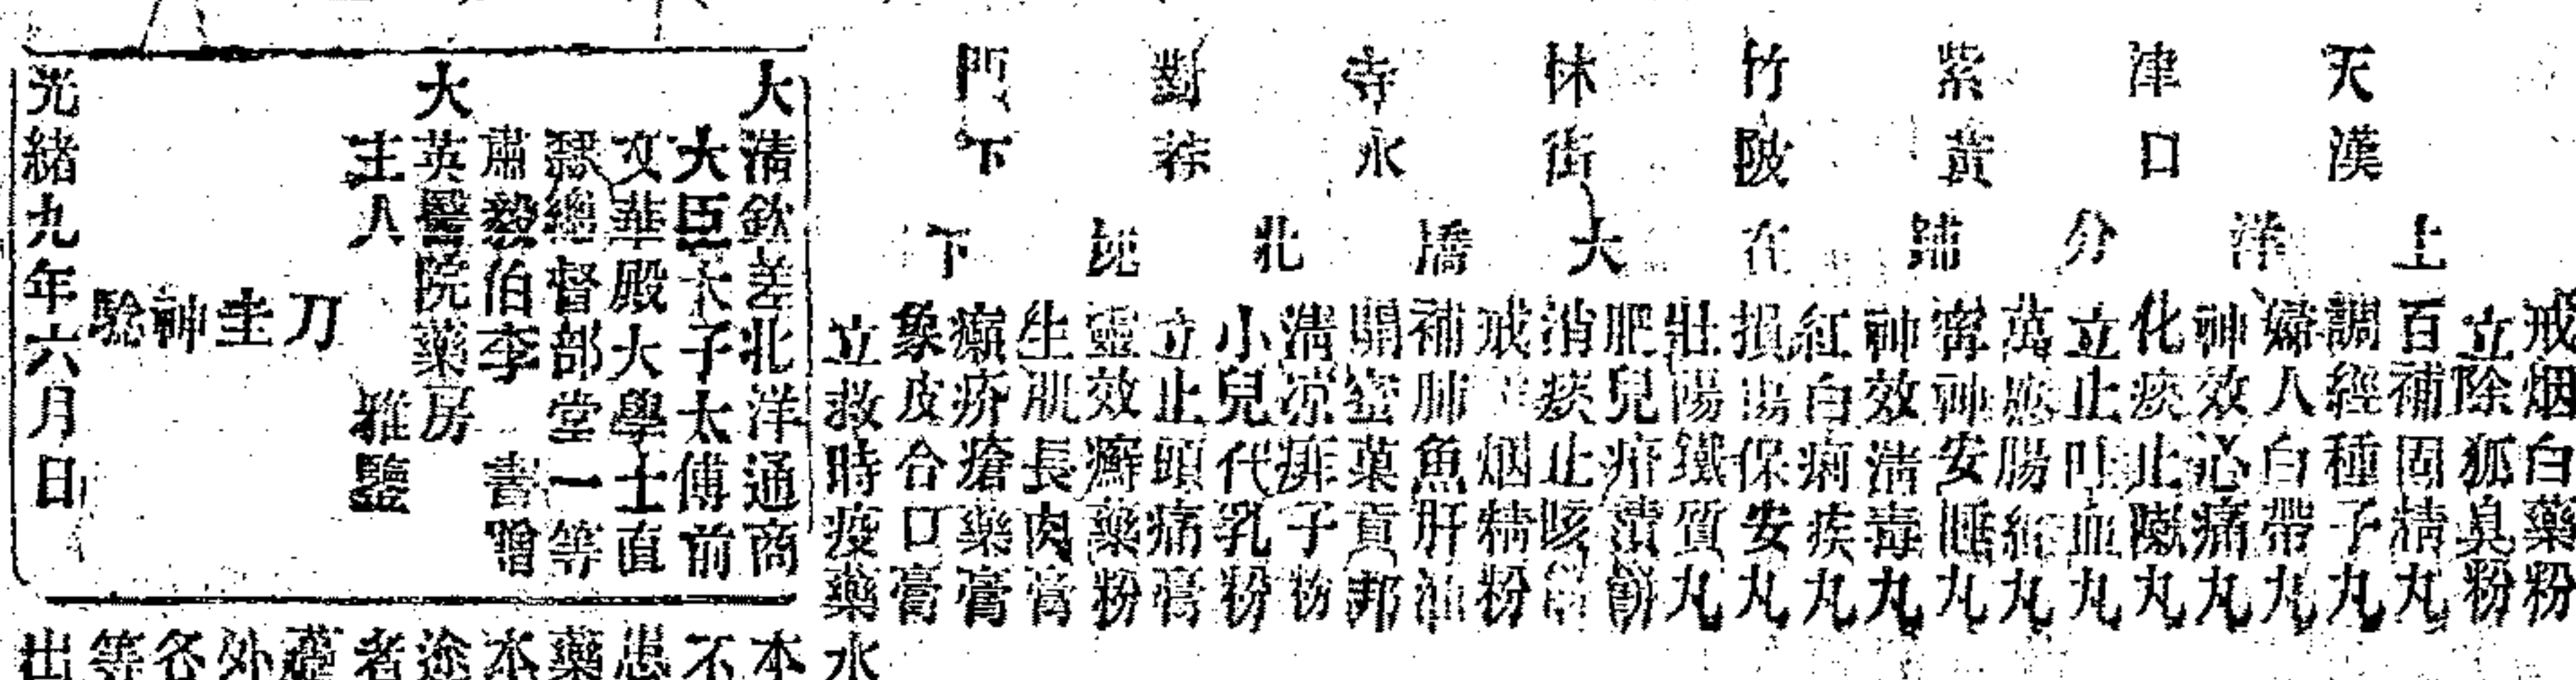 天津紫竹林寺對門
漢口黃陂街永蒣下
上洋分鋪在大橋北堍下
戒烟白藥粉
立除狐臭粉
百補固精丸
調經種子丸
婦人白帶丸
神效心痛丸
化痰止嗽丸
立止吐血丸
萬應腸紅丸
寧神安睡丸
神效淸毒丸
紅白痢疾丸
損傷保安丸
壯陽鐵質丸
肥兒疳漬餅
消痰止咳
戒烟精粉
補肺魚肝油
賜蜜菓貢邦
淸凉痱子粉
小兒代乳粉
立止頭痛膏
靈效癬藥粉
生肌長肉膏
癩疥瘡藥膏
象皮合口膏
立救時疫藥水
大淸欽差北洋通商
大臣太子太傅前
文華殿大學士直
隸總督部堂一等
肅毅伯李 書贈
大英醫院藥房
主人 雅鑒
刀
圭
神
驗
光緒九年六月日
本
不
患
藥
本
途
者
蘊
外
各
等
出